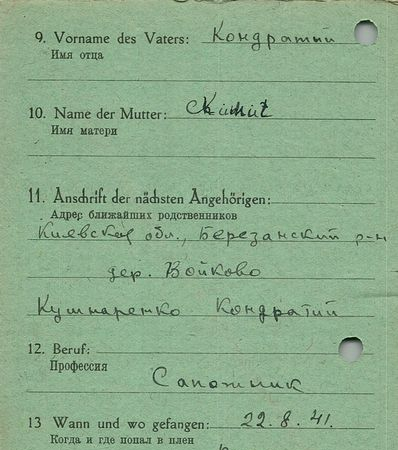 9. Vorname des Vaters: Кондратий
Имя отца
10. Name der Mutter:
Имя матери
11. Anschrift der nächsten Angehörigen:
Адрес ближайших родственников
Киевская обл., Березанский р-н
дер. Войково
Кушнаренко Кондратий
12. Beruf:
Профессия
Сапожник
13 Wann und wo gefangen: 22. 8. 41.
Когда и где попал в плен